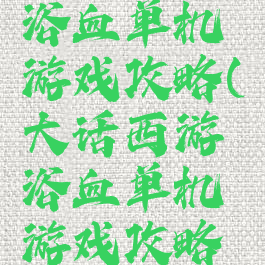 浴血单机
游戏攻略(
大话西游
浴血单机
游戏攻略